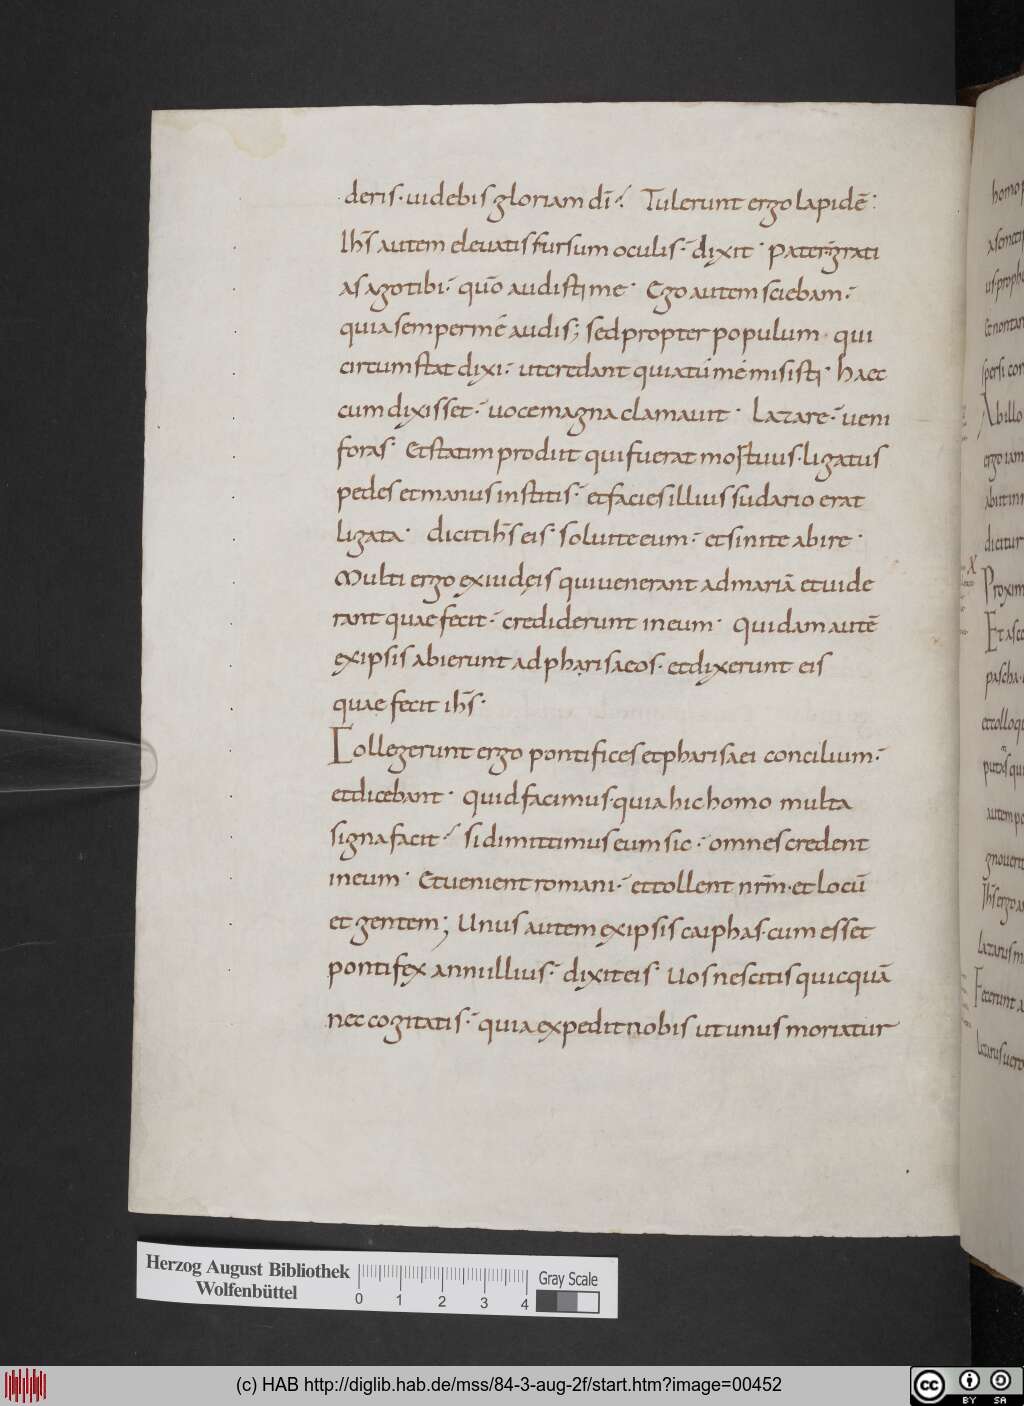 deris· uidebis gloriam dī·/ Tulerunt ergo lapidē·
Ihs̄ autem eleuatis sursum oculis·̄ dixit· Pater·̄ grati
as ago tibi·̄ quō audisti me· Ego autem sciebam·̄
quia semper mé audis; sed propter populum· qui
circumstat dixi·̄ ut credant quia tú mé misisti· haec
cum dixisset·̄ uoce magna clamauit· Lazare·̄ ueni
foras· Et statim prodiit qui fuerat mortuus· ligatus
pedes et manus institis·̄ et facies illius sudario erat
ligata· dicit ihs̄ eis· soluite eum·̄ et sinite abire·
Multi ergo ex iudęis qui uenerant ad mariā et uide
rant quae fecit·̄ crediderunt in eum· Quidam autē
ex ipsis abierunt ad pharisaeos· et dixerunt eis
quae fecit ihs̄·
Collegerunt ergo pontifices et pharisaei concilium·̄
et dicebant· quid facimus· quia hic homo multa
signa facit·/ si dimittimus eum sic·̄ omnes credent
in eum· Et uenient romani·̄ et tollent nrm̄· et locū
et gentem; Unus autem ex ipsis caiphas· cum esset
pontifex anni illius·̄ dixit eis· Uos nescitis quicquā
nec cogitatis·̄ quia expedit nobis ut unus moriatur
homo
Et non tan
Abillo
ergo iam
abiit in
dicitur
Proxim
Et asce
pascha·
et colloq
autem po
gnouerit
Ihs̄ ergo an
lazarus m
Fecerunt a
lazarus uero
Herzog August Bibliothek
Wolfenbüttel
0 1 2 3 4
Gray Scale
(c) HAB http://diglib.hab.de/mss/84-3-aug-2f/start.htm?image=00452
cc BY SA